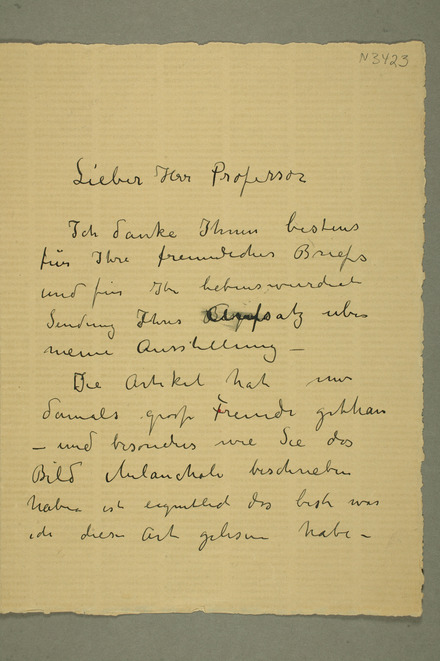 N 3423
Lieber Herr Professor
Ich danke Ihnen bestens
für Ihre freundliches Briefs
und für Ihr liebenswürdiche
Sendung Ihres Aufsatz uber
meine Ausstellung –
Die Artikel hat mir
damals gross Freude gethan
– und besonders wie Sie das
Bild Melancholi beschrieben
haben ist eigentlich das beste was
ich diese Art gelesen habe –